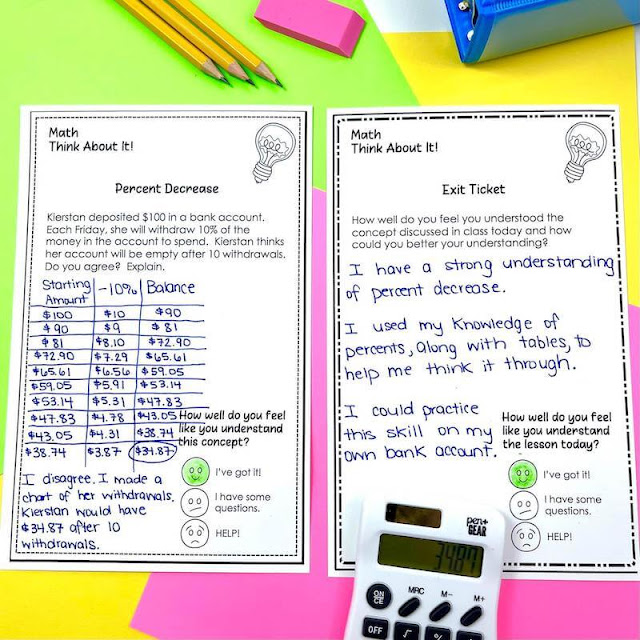 Math
Think About It!
Percent Decrease
Kierstan deposited $100 in a bank account.
Each Friday, she will withdraw 10% of the
money in the account to spend. Kierstan thinks
her account will be empty after 10 withdrawals.
Do you agree? Explain.
Starting Amount -10% Balance
$100 $10 $90
$90 $9 $81
$81 $8.10 $72.90
$72.90 $7.29 $65.61
$65.61 $6.56 $59.05
$59.05 $5.91 $53.14
$53.14 $5.31 $47.83
$47.83 $4.78 $43.05
$43.05 $4.31 $38.74
$38.74 $3.87 $34.87
I disagree. I made a
chart of her withdrawals.
Kierstan would have
$34.87 after 10
withdrawals.
How well do you feel
like you understand
this concept?
I've got it!
I have some
questions.
HELP!
Math
Think About It!
Exit Ticket
How well do you feel you understood the
concept discussed in class today and how
could you better your understanding?
I have a strong understanding
of percent decrease.
I used my knowledge of
percents, along with tables, to
help me think it through.
I could practice
this skill on my
own bank account.
How well do you feel
like you understand
the lesson today?
I've got it!
I have some
questions.
HELP!
pen+
GEAR
34.87
ON
CE
MRC M- M+
OFF √ %